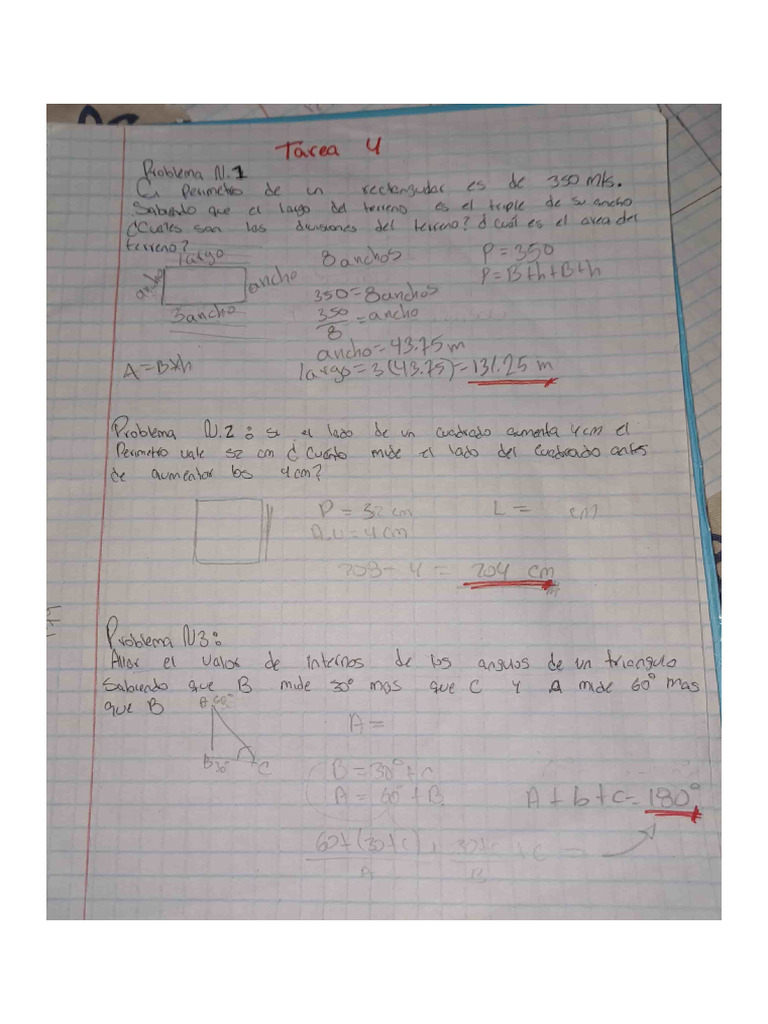 Tarea 4
Problema N.1
Perimetro de un rectangular es de 350 mts.
Sabiendo que el largo del terreno es el triple de su ancho
¿Cuales son las diviciones del terreno? ¿cuál es el area del
terreno?
largo
ancho
ancho
3ancho
8anchos
350=8anchos
350/8=ancho
ancho=43.75 m
largo=3(43.75)=131.25 m
P=350
P=B+h+B+h
A=B×h
Problema N.2: si el lado de un cuadrado aumenta 4cm el
Perimetro vale 52 cm ¿Cuánto mide el lado del cuadrado antes
de aumentar los 4cm?
P = 32 cm
L = cm
A.u=4cm
208-4 = 204 cm
Problema N3:
Allar el valor de internos de los angulos de un triangulo
Sabiendo que B mide 30° mas que C y A mide 60° mas
que B
A60°
B30°
C
A=
B=30°+c
A=60°+B
A+b+c=180°
60+(30+c)+30+c+c=
A
B